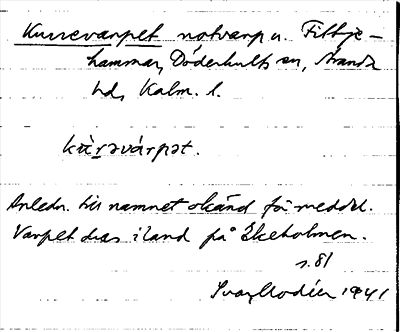 Kurrevarpet notvarp u. Fittje-
hammar, Döderhults sn, Stranda
hd, Kalm. l.
kùrəvárpət.
Anledn. till namnet okänd för meddel.
Varpet dras i land på Ekeholmen.
s. 81
Ivar Modéer 1941